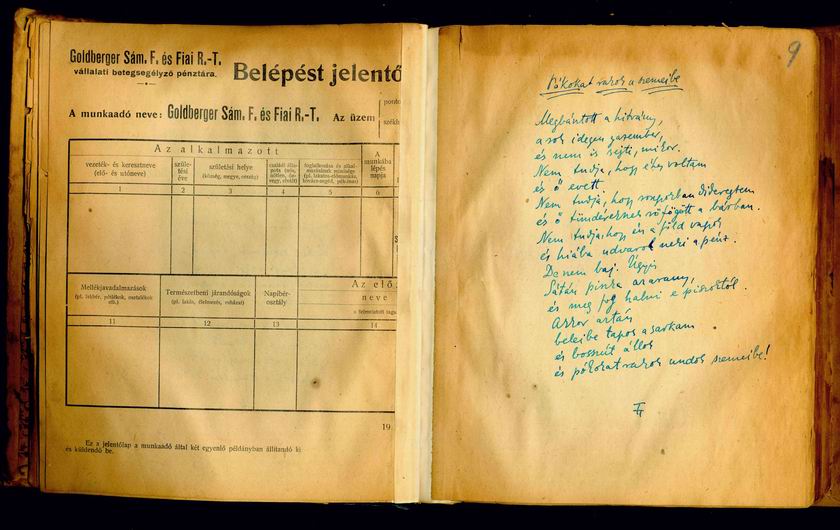 Goldberger Sám. F. és Fiai R.-T.
vállalati betegsegélyző pénztára.
Belépést jelentő
A munkaadó neve: Goldberger Sám. F. és Fiai R.-T. Az üzem
ponto
székh
Az alkalmazott
vezeték- és keresztneve
(elő- és utóneve)
szüle-
tési
éve
születési helye
(község, megye, ország)
családi álla-
pota (nős,
nőtlen, öz-
vegy, elvált)
foglalkozása és alkal-
mazásának minősége
(pl. lakatos-előmunkás,
A munkába
lépés
napja
1
2
3
4
5
6
Mellékjavadalmazások
(pl. lakbér, pótlékok, osztalékok
stb.)
Természetbeni járandóságok
(pl. lakás, élelmezés, ruházat)
Napibér-
osztály
Az elő
neve
11
12
13
14
19
Ez a jelentőlap a munkaadó által két egyenlő példányban állítandó ki
és küldendő be.
9
Pókokat rakok a szemeibe
Megbántott a hitvány,
a sok idegen gazember,
és nem is sejti, mikor.
Nem tudja, hogy éhes voltam
és ő evett.
Nem tudja, hogy rongyokban dideregtem
és ő tündéreknek röfögött a bárban.
Nem tudja, hogy én a föld vagyok
és hiába udvarol neki a pénz.
De nem baj. Úgyis
Sátán pénze az arany,
és meg fog halni e piszoktól.
Akkor aztán
beleibe tapos a sarkam
és bosszút állok
és pókokat rakok undok szemeibe!